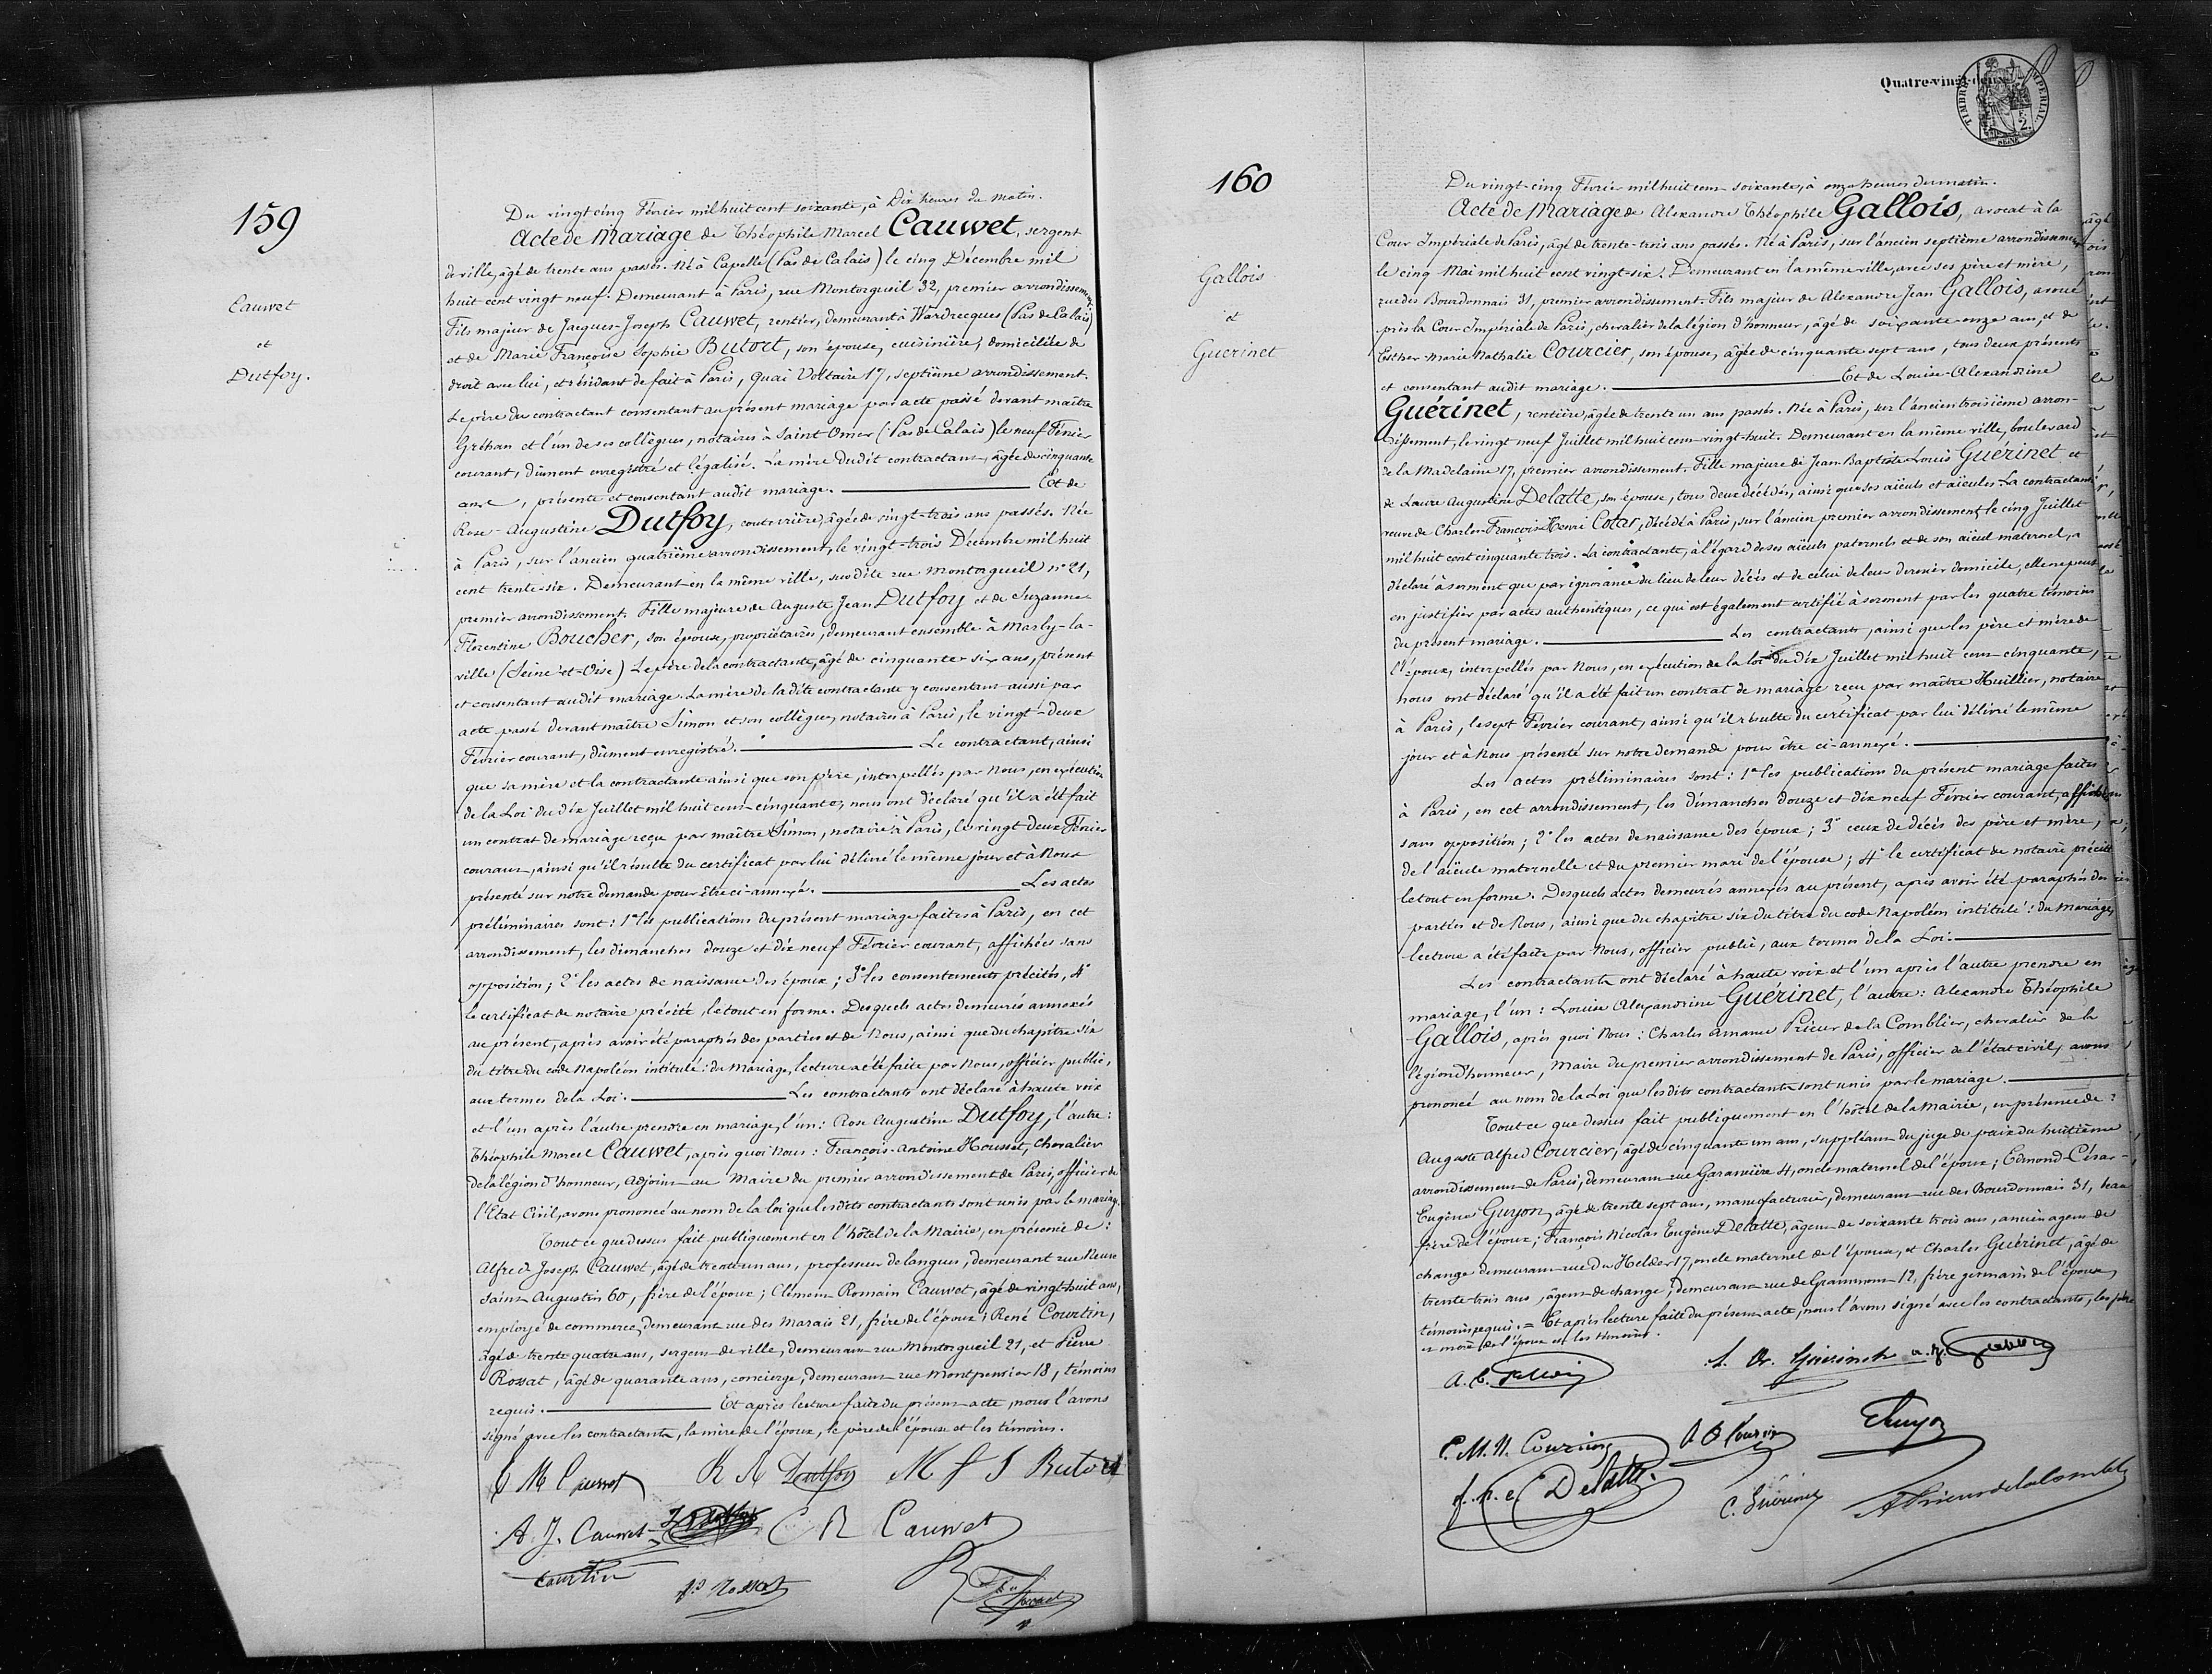 159
Cauwet
et
Dutfoy.
Du vingt cinq Février mil huit cent soixante, à Dix heures du matin.
Acte de Mariage de Théophile Marcel Cauwet, sergent
de ville, âgé de trente ans passés. Né à Capelle (Pas de Calais) le cinq Décembre mil
huit cent vingt neuf. Demeurant à Paris, rue Montorgueil 32, premier arrondissement.
Fils majeur de Jacques-Joseph Cauwet, rentier, demeurant à Wardrecques (Pas de Calais)
et de Marie Françoise Sophie Butort, son épouse, cuisinière, domiciliée de
droit avec lui, et résidant de fait à Paris, Quai Voltaire 17, septième arrondissement.
Le père du contractant consentant au présent mariage par acte passé devant maître
Gréhan et l'un de ses collègues, notaires à Saint Omer (Pas de Calais) le neuf Février
courant, dûment enregistré et légalisé. La mère dudit contractant, âgée de cinquante
ans, présente et consentant audit mariage. Et de
Rose-Augustine Dutfoy, couturière, âgée de vingt-trois ans passés. Née
à Paris, sur l'ancien quatrième arrondissement, le vingt-trois Décembre mil huit
cent trente-six. Demeurant en la même ville, susdite rue Montorgueil n° 21,
premier arrondissement. Fille majeure de Auguste Jean Dutfoy et de Suzanne
Florentine Boucher, son épouse, propriétaires, demeurant ensemble à Marly-la-
ville (Seine-et-Oise) Le père de la contractante, âgé de cinquante-six ans, présent
et consentant audit mariage. La mère de la dite contractante y consentant aussi par
acte passé devant maître Simon et son collègue, notaires à Paris, le vingt-deux
Février courant, dûment enregistré. Le contractant, ainsi
que sa mère et la contractante ainsi que son père, interpellés par Nous, en exécution
de la Loi du dix Juillet mil huit cent cinquante, nous ont déclaré qu'il a été fait
un contrat de mariage reçu par maître Simon, notaire à Paris, le vingt deux Février
courant, ainsi qu'il résulte du certificat par lui délivré le même jour et à Nous
présenté sur notre demande pour être ci-annexé. Les actes
préliminaires sont: 1° les publications du présent mariage faites à Paris, en cet
arrondissement, les dimanches douze et dix neuf Février courant, affichées sans
opposition; 2° les actes de naissance des époux; 3° les consentements précités, 4°
le certificat de notaire précité, le tout en forme. Desquels actes demeurés annexés
au présent, après avoir été paraphés des parties et de Nous, ainsi que du chapitre six
du titre du code Napoléon intitulé: du Mariage, lecture a été faite par Nous, officier public,
aux termes de la Loi. Les contractants ont déclaré à haute voix
et l'un après l'autre prendre en mariage, l'un: Rose Augustine Dutfoy, l'autre:
Théophile Marcel Cauwet, après quoi Nous: François-Antoine Housset, Chevalier
de la légion d'honneur, Adjoint au Maire du premier arrondissement de Paris, officier de
l'Etat Civil, avons prononcé au nom de la loi que lesdits contractants sont unis par le mariage.
Tout ce que dessus fait publiquement en l'hôtel de la Mairie, en présence de:
Alfred Joseph Cauwet, âgé de trente un ans, professeur de langues, demeurant rue Neuve
Saint Augustin 60, frère de l'époux; Clément Romain Cauwet, âgé de vingt-huit ans,
employé de commerce, demeurant rue des Marais 21, frère de l'époux; René Courtin,
âgé de trente quatre ans, sergent de ville, demeurant rue Montorgueil 21, et Pierre
Rossat, âgé de quarante ans, concierge, demeurant rue Montpensier 18, témoins
requis. Et après lecture faite du présent acte, nous l'avons
signé avec les contractants, la mère de l'époux, le père de l'épouse et les témoins.
T M Cauwet R A Dutfoy M f S Butort
A. J. Cauwet C R Cauwet
Courtin
Rossat
Quatre-vingt-deux
TIMBRE IMPERIAL
SEINE
160
Gallois
et
Guerinet
Du vingt-cinq Février mil huit cent soixante, à onze heures du matin.
Acte de Mariage de Alexandre Théophile Gallois, avocat à la
Cour Impériale de Paris, âgé de trente-trois ans passés. Né à Paris, sur l'ancien septième arrondissement,
le cinq Mai mil huit cent vingt-six. Demeurant en la même ville, avec ses père et mère,
rue des Bourdonnais 31, premier arrondissement. Fils majeur de Alexandre Jean Gallois, avoué
près la Cour Impériale de Paris, chevalier de la légion d'honneur, âgé de soixante-onze ans, et de
Esther-Marie Nathalie Courcier, son épouse, âgée de cinquante sept ans, tous deux présents
et consentant audit mariage. Et de Louise-Alexandrine
Guérinet, rentière, âgée de trente un ans passés. Née à Paris, sur l'ancien troisième arron-
dissement, le vingt neuf Juillet mil huit cent vingt-huit. Demeurant en la même ville, boulevard
de la Madelaine 17, premier arrondissement. Fille majeure de Jean Baptiste Louis Guérinet et
de Laure Augustine Delatte, son épouse, tous deux décédés, ainsi que ses aïeuls et aïeules. La contractante
veuve de Charles François-Henri Cotar, décédé à Paris, sur l'ancien premier arrondissement le cinq Juillet
mil huit cent cinquante trois. La contractante, à l'égard de ses aïeuls paternels et de son aïeul maternel, a
déclaré à serment que par ignorance du lieu de leur décès et de celui de leur dernier domicile, elle ne peut
en justifier par actes authentiques, ce qui est également certifié à serment par les quatre témoins
du présent mariage. Les contractants, ainsi que les père et mère de
l'époux, interpellés par Nous, en exécution de la loi du dix Juillet mil huit cent cinquante,
nous ont déclaré qu'il a été fait un contrat de mariage reçu par maître Huillier, notaire
à Paris, le sept Février courant, ainsi qu'il résulte du certificat par lui délivré le même
jour et à Nous présenté sur notre demande pour être ci-annexé.
Les actes préliminaires sont: 1° les publications du présent mariage faites
à Paris, en cet arrondissement, les dimanches douze et dix neuf Février courant, affichées
sans opposition; 2° les actes de naissance des époux; 3° ceux de décès des père et mère,
de l'aïeule maternelle et du premier mari de l'épouse; 4° le certificat de notaire précité
le tout en forme. Desquels actes demeurés annexés au présent, après avoir été paraphés des
parties et de Nous, ainsi que du chapitre six du titre du code Napoléon intitulé: du Mariage,
lecture a été faite par Nous, officier public, aux termes de la Loi.
Les contractants ont déclaré à haute voix et l'un après l'autre prendre en
mariage, l'un: Louise Alexandrine Guérinet, l'autre: Alexandre Théophile
Gallois, après quoi Nous: Charles Amand Prieur de la Comblier, chevalier de la
légion d'honneur, Maire du premier arrondissement de Paris, officier de l'état civil, avons
prononcé au nom de la Loi que les dits contractants sont unis par le mariage.
Tout ce que dessus fait publiquement en l'hôtel de la Mairie, en présence de:
Auguste Alfred Courcier, âgé de cinquante un ans, suppléant du juge de paix du huitième
arrondissement de Paris, demeurant rue Garancière 4, oncle maternel de l'époux; Edmond-César-
Eugène Guyon, âgé de trente sept ans, manufacturier, demeurant rue des Bourdonnais 31, beau
frère de l'époux; François Nicolas Eugène Delatte, âgé de soixante trois ans, ancien agent de
change demeurant rue du Helder 17, oncle maternel de l'épouse, et Charles Guérinet, âgé de
trente trois ans, agent de change, demeurant rue de Grammont 12, frère germain de l'épouse,
témoins requis. = Et après lecture faite du présent acte, nous l'avons signé avec les contractants, les père
et mère de l'époux et les témoins.
L. A. Guérinet
E. M. N. Courcier
f. n. e. Delatte
C. Guérinet
APrieur de la Comble